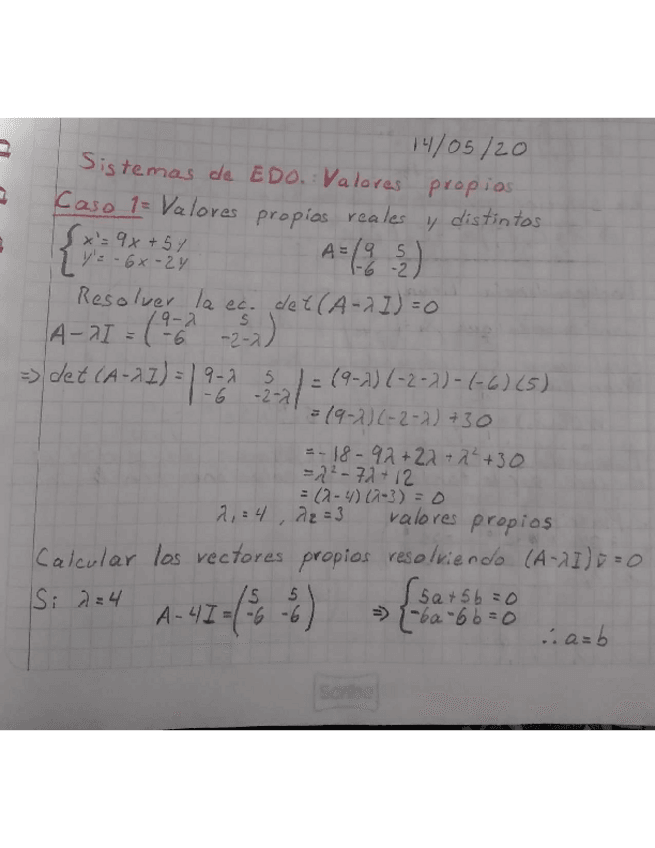 14/05/20
Sistemas de EDO.: Valores propios
Caso 1= Valores propios reales y distintos
{x'= 9x + 5y A=(9 5
y'= -6x -2y -6 -2)
Resolver la ec. det(A-λI)=0
A-λI = (9-λ 5
-6 -2-λ)
=> det(A-λI)=|9-λ 5| = (9-λ)(-2-λ)-(-6)(5)
|-6 -2-λ|
= (9-λ)(-2-λ)+30
=-18-9λ+2λ+λ²+30
=λ²-7λ+12
=(λ-4)(λ-3)=0
λ₁=4, λ₂=3 valores propios
Calcular los vectores propios resolviendo (A-λI)v̄=0
Si λ=4 A-4I=(5 5 => {5a+5b=0
-6 -6) -6a-6b=0
∴a=b